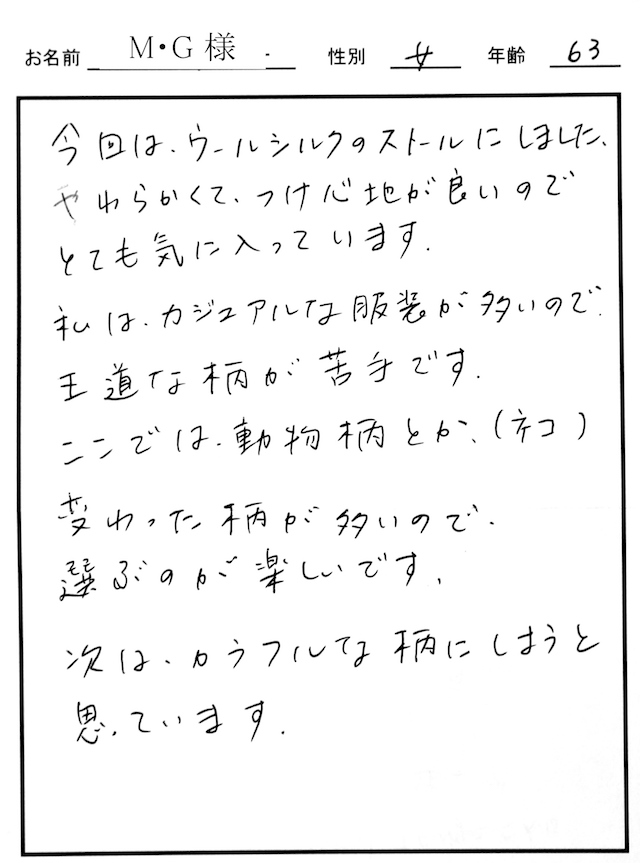 お名前 M・G様 性別 女 年齢 63
今回は、ウールシルクのストールにしました、
やわらかくて、つけ心地が良いので
とても気に入っています.
私は、カジュアルな服装が多いので、
王道な柄が苦手です.
ここでは、動物柄とか、(ネコ)
変わった柄が多いので、
選ぶのが楽しいです.
次は、カラフルな柄にしようと
思っています.